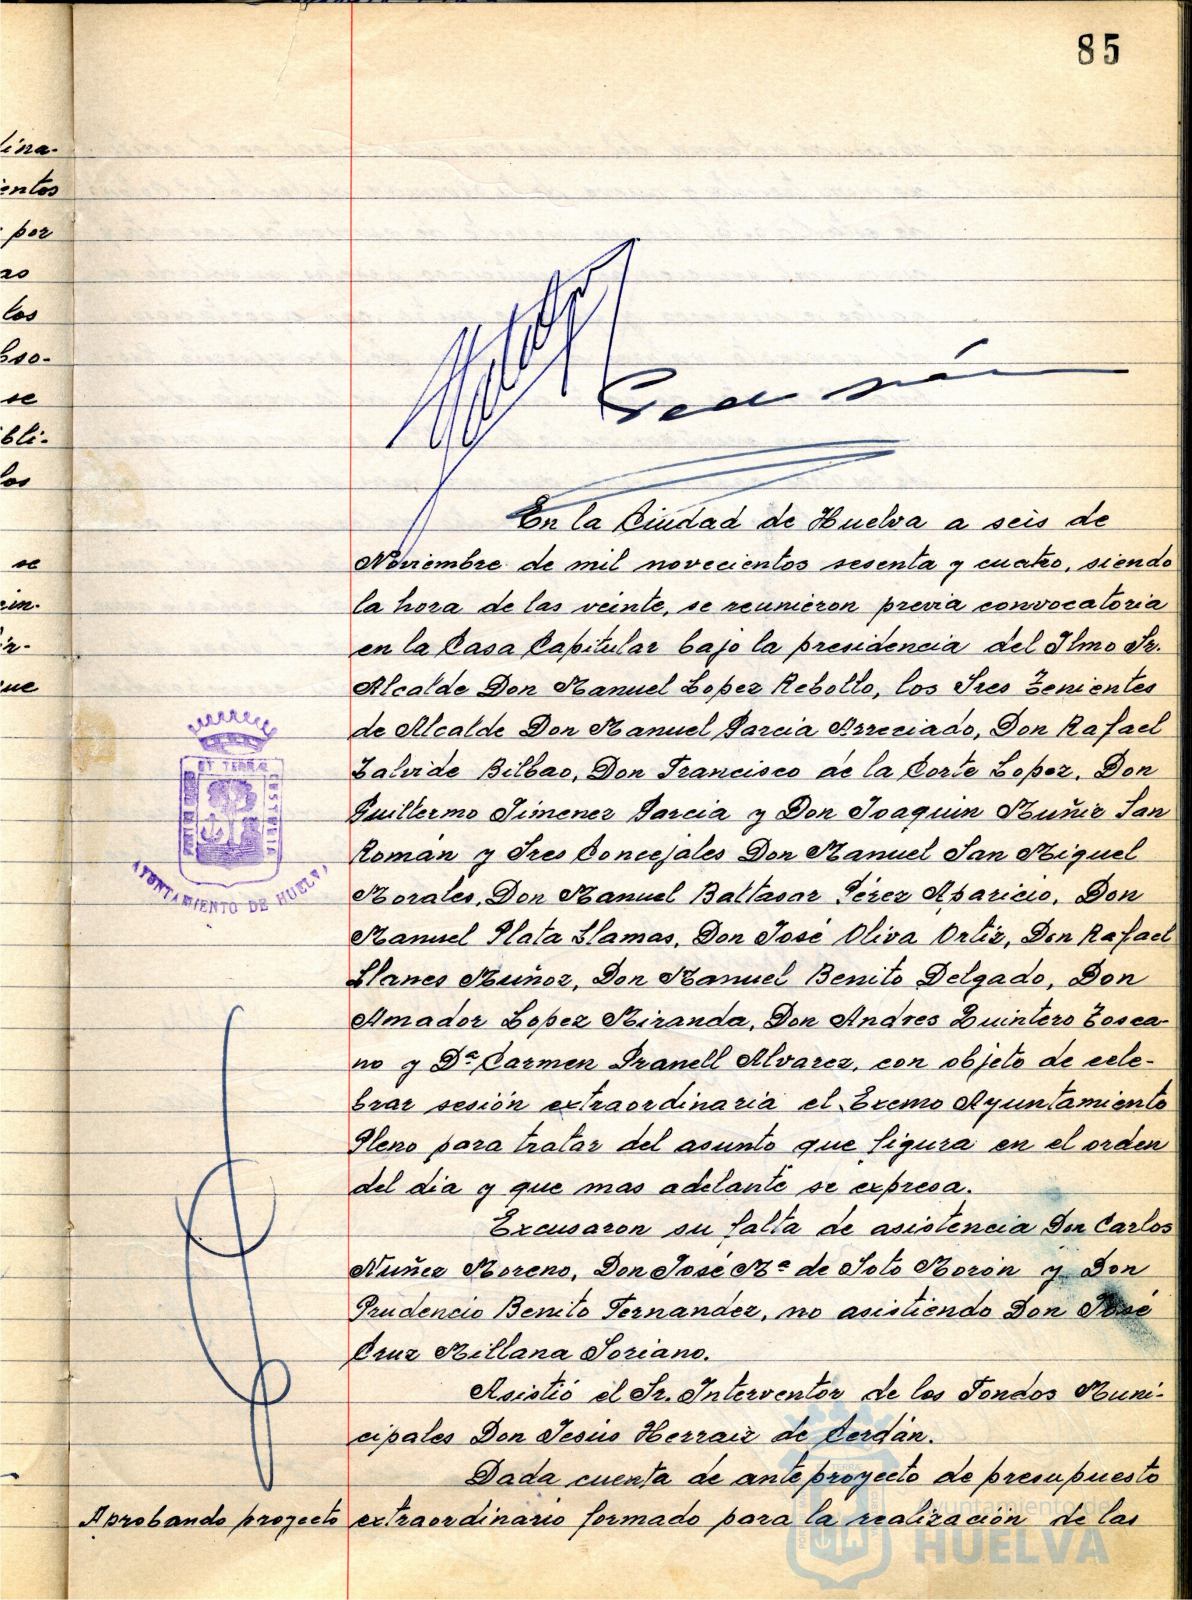 85
lina-
entos
por
los
bso-
se
ibli-
los
se
cin-
ir-
que
En la Ciudad de Huelva a seis de
Noviembre de mil novecientos sesenta y cuatro, siendo
la hora de las veinte, se reunieron previa convocatoria
en la Casa Capitular bajo la presidencia del Ilmo Sr.
Alcalde Don Manuel Lopez Rebollo, los Sres Tenientes
de Alcalde Don Manuel Garcia Arreciado, Don Rafael
Zalvide Bilbao, Don Francisco de la Corte Lopez, Don
Guillermo Jimenez Garcia y Don Joaquin Muñiz San
Román y Sres Concejales Don Manuel San Miguel
Morales, Don Manuel Baltasar Pérez Aparicio, Don
Manuel Plata Llamas, Don José Oliva Ortiz, Don Rafael
Llanes Muñoz, Don Manuel Benito Delgado, Don
Amador Lopez Miranda, Don Andres Quintero Tosca-
no y Dª Carmen Granell Alvarez, con objeto de cele-
brar sesión extraordinaria el Excmo Ayuntamiento
Pleno para tratar del asunto que figura en el orden
del dia y que mas adelante se expresa.
Excusaron su falta de asistencia Don Carlos
Nuñez Moreno, Don José Mª de Soto Morón y Don
Prudencio Benito Fernandez, no asistiendo Don José
Cruz Millana Soriano.
Asistió el Sr. Interventor de los Fondos Muni-
cipales Don Jesús Herraiz de Cerdán.
Dada cuenta de anteproyecto de presupuesto
Aprobando proyecto extraordinario formado para la realización de las
PORTUS MARIS ET TERRAE CUSTODIA
AYUNTAMIENTO DE HUELVA
Ayuntamiento de
HUELVA